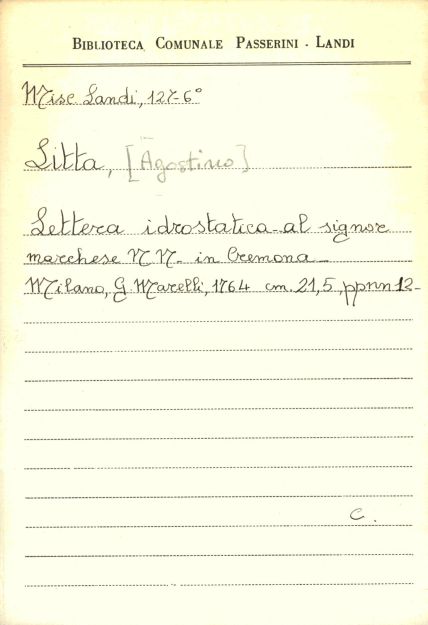 BIBLIOTECA COMUNALE PASSERINI - LANDI
Misc Landi, 127-6°
Litta, [Agostino]
Lettera idrostatica al signor
marchese N N. in Cremona
Milano, G. Marelli, 1764 cm. 21,5, ppnn 12
C.